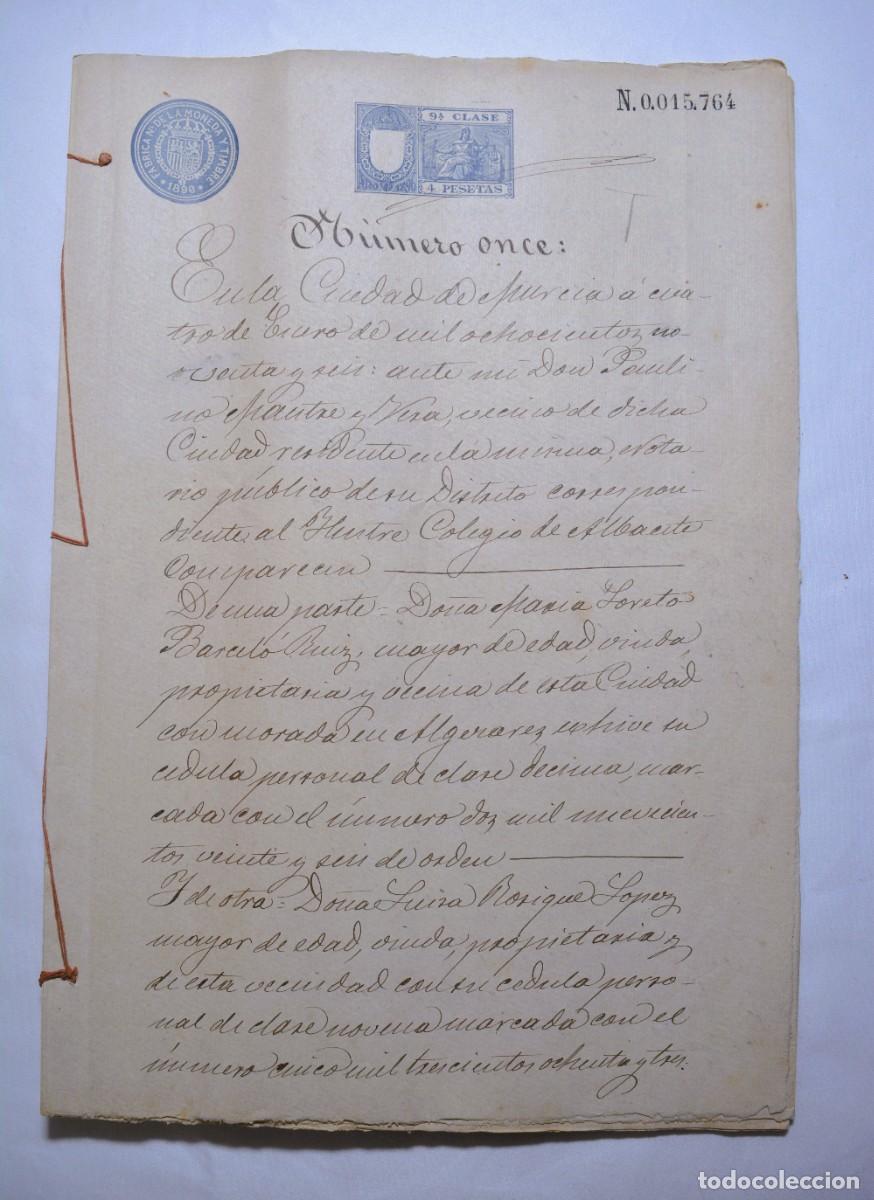 N.0.015.764
FABRICA NL. DE LA MONEDA Y TIMBRE
1890
9ª CLASE
4 PESETAS
Número once:
En la Ciudad de Murcia á cua-
tro de Enero de mil ochocientos no-
venta y seis: ante mi Don Pauli-
no y Vera, vecino de dicha
Ciudad residente en la misma, Nota-
rio público de su Distrito correspon-
diente al Ilustre Colegio de Albacete
Comparecen
De una parte = Doña Maria Loreto
Barceló Ruiz, mayor de edad, viuda,
propietaria y vecina de esta Ciudad
con morada en Algezares, exhive su
cedula personal de clase decima, mar-
cada con el número dos mil nuevecien-
tos veinte y seis de orden
Y de otra = Doña Luisa Rosique Lopez
mayor de edad, viuda, propietaria y
de esta vecindad con su cedula perso-
nal de clase novena marcada con el
número cinco mil trescientos ochenta y tres.
todocoleccion